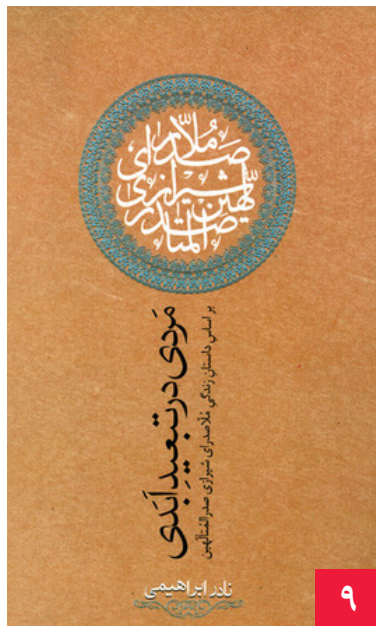 ملّا
صدرای
شیرازی
صدرالمتالّهین
مَردی در تبعیدِ اَبَدی
بر اساسِ داستانِ زندگیِ مُلاصدرای شیرازی صدرالمُتالّهین
نادر ابراهیمی
۹